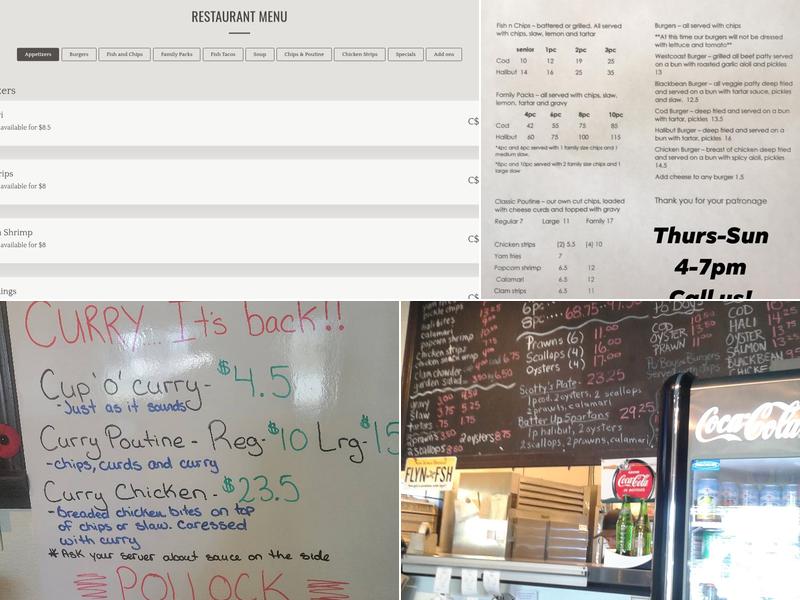 RESTAURANT MENU
Appetizers Burgers Fish and Chips Family Packs Fish Tacos Soup Chips & Poutine Chicken Strips Specials Add ons
zers
ri
available for $8.5
C$
rips
available for $8
C$
n Shrimp
available for $8
C$
ings
C$
Fish n Chips – battered or grilled. All served
with chips, slaw, lemon and tartar
senior 1pc 2pc 3pc
Cod 10 12 19 25
Halibut 14 16 25 35
Family Packs – all served with chips, slaw,
lemon, tartar and gravy
4pc 6pc 8pc 10pc
Cod 42 55 75 85
Halibut 60 75 100 115
*4pc and 6pc served with 1 family size chips and 1
medium slaw.
*8pc and 10pc served with 2 family size chips and 1
large slaw
Classic Poutine – our own cut chips, loaded
with cheese curds and topped with gravy
Regular 7 Large 11 Family 17
Chicken strips (2) 5.5 (4) 10
Yam fries 7
Popcorn shrimp 6.5 12
Calamari 6.5 12
Clam strips 6.5 12
Burgers – all served with chips
**At this time our burgers will not be dressed
with lettuce and tomato**
Westcoast Burger – grilled all beef patty served
on a bun with roasted garlic aioli and pickles
13
Blackbean Burger – all veggie patty deep fried
and served on a bun with tartar sauce, pickles
and slaw. 12.5
Cod Burger – deep fried and served on a bun
with tartar, pickles 13.5
Halibut Burger – deep fried and served on a
bun with tartar, pickles 16
Chicken Burger – breast of chicken deep fried
and served on a bun with spicy aioli, pickles
14.5
Add cheese to any burger 1.5
Thank you for your patronage
Thurs-Sun
4-7pm
Call us!
CURRY... It's back!!
Cup 'o' curry - $4.5
- Just as it sounds
Curry Poutine - Reg- $10 Lrg- $15
- chips, curds and curry
Curry Chicken - $23.5
- Breaded chicken bites on top
of chips or slaw. Caressed
with curry
* Ask your server about sauce on the side
POLLOCK
yam fries
halibites
calamari
popcorn shrimp
chicken strips
chicken snack wrap
clam chowder
garden salad
gravy 3.00 4.50
slaw 3.75 5.25
tartar .75 1.75
2 prawns 3.50 2 oysters 8.75
2 scallops 8.00
6pc...
8pc.... 68.75
Prawns (6) 11.00
Scallops (4) 16.00
Oysters (4) 17.00
Scotty's Plate - 23.25
1pc cod, 2 oysters, 2 scallops
2 prawns, calamari
Batter Up Spartans 29.25
1p halibut, 2 oysters
2 scallops, 2 prawns, calamari
Po Boys
COD 10.50
OYSTER 13.50
PRAWN 11.00
COD
HALI
OYSTER
SALMON
BLACKBEAN
CHICKE
Po Boys & Burgers
Served with chips
FLYN FSH
Coca-Cola
Coca-Cola